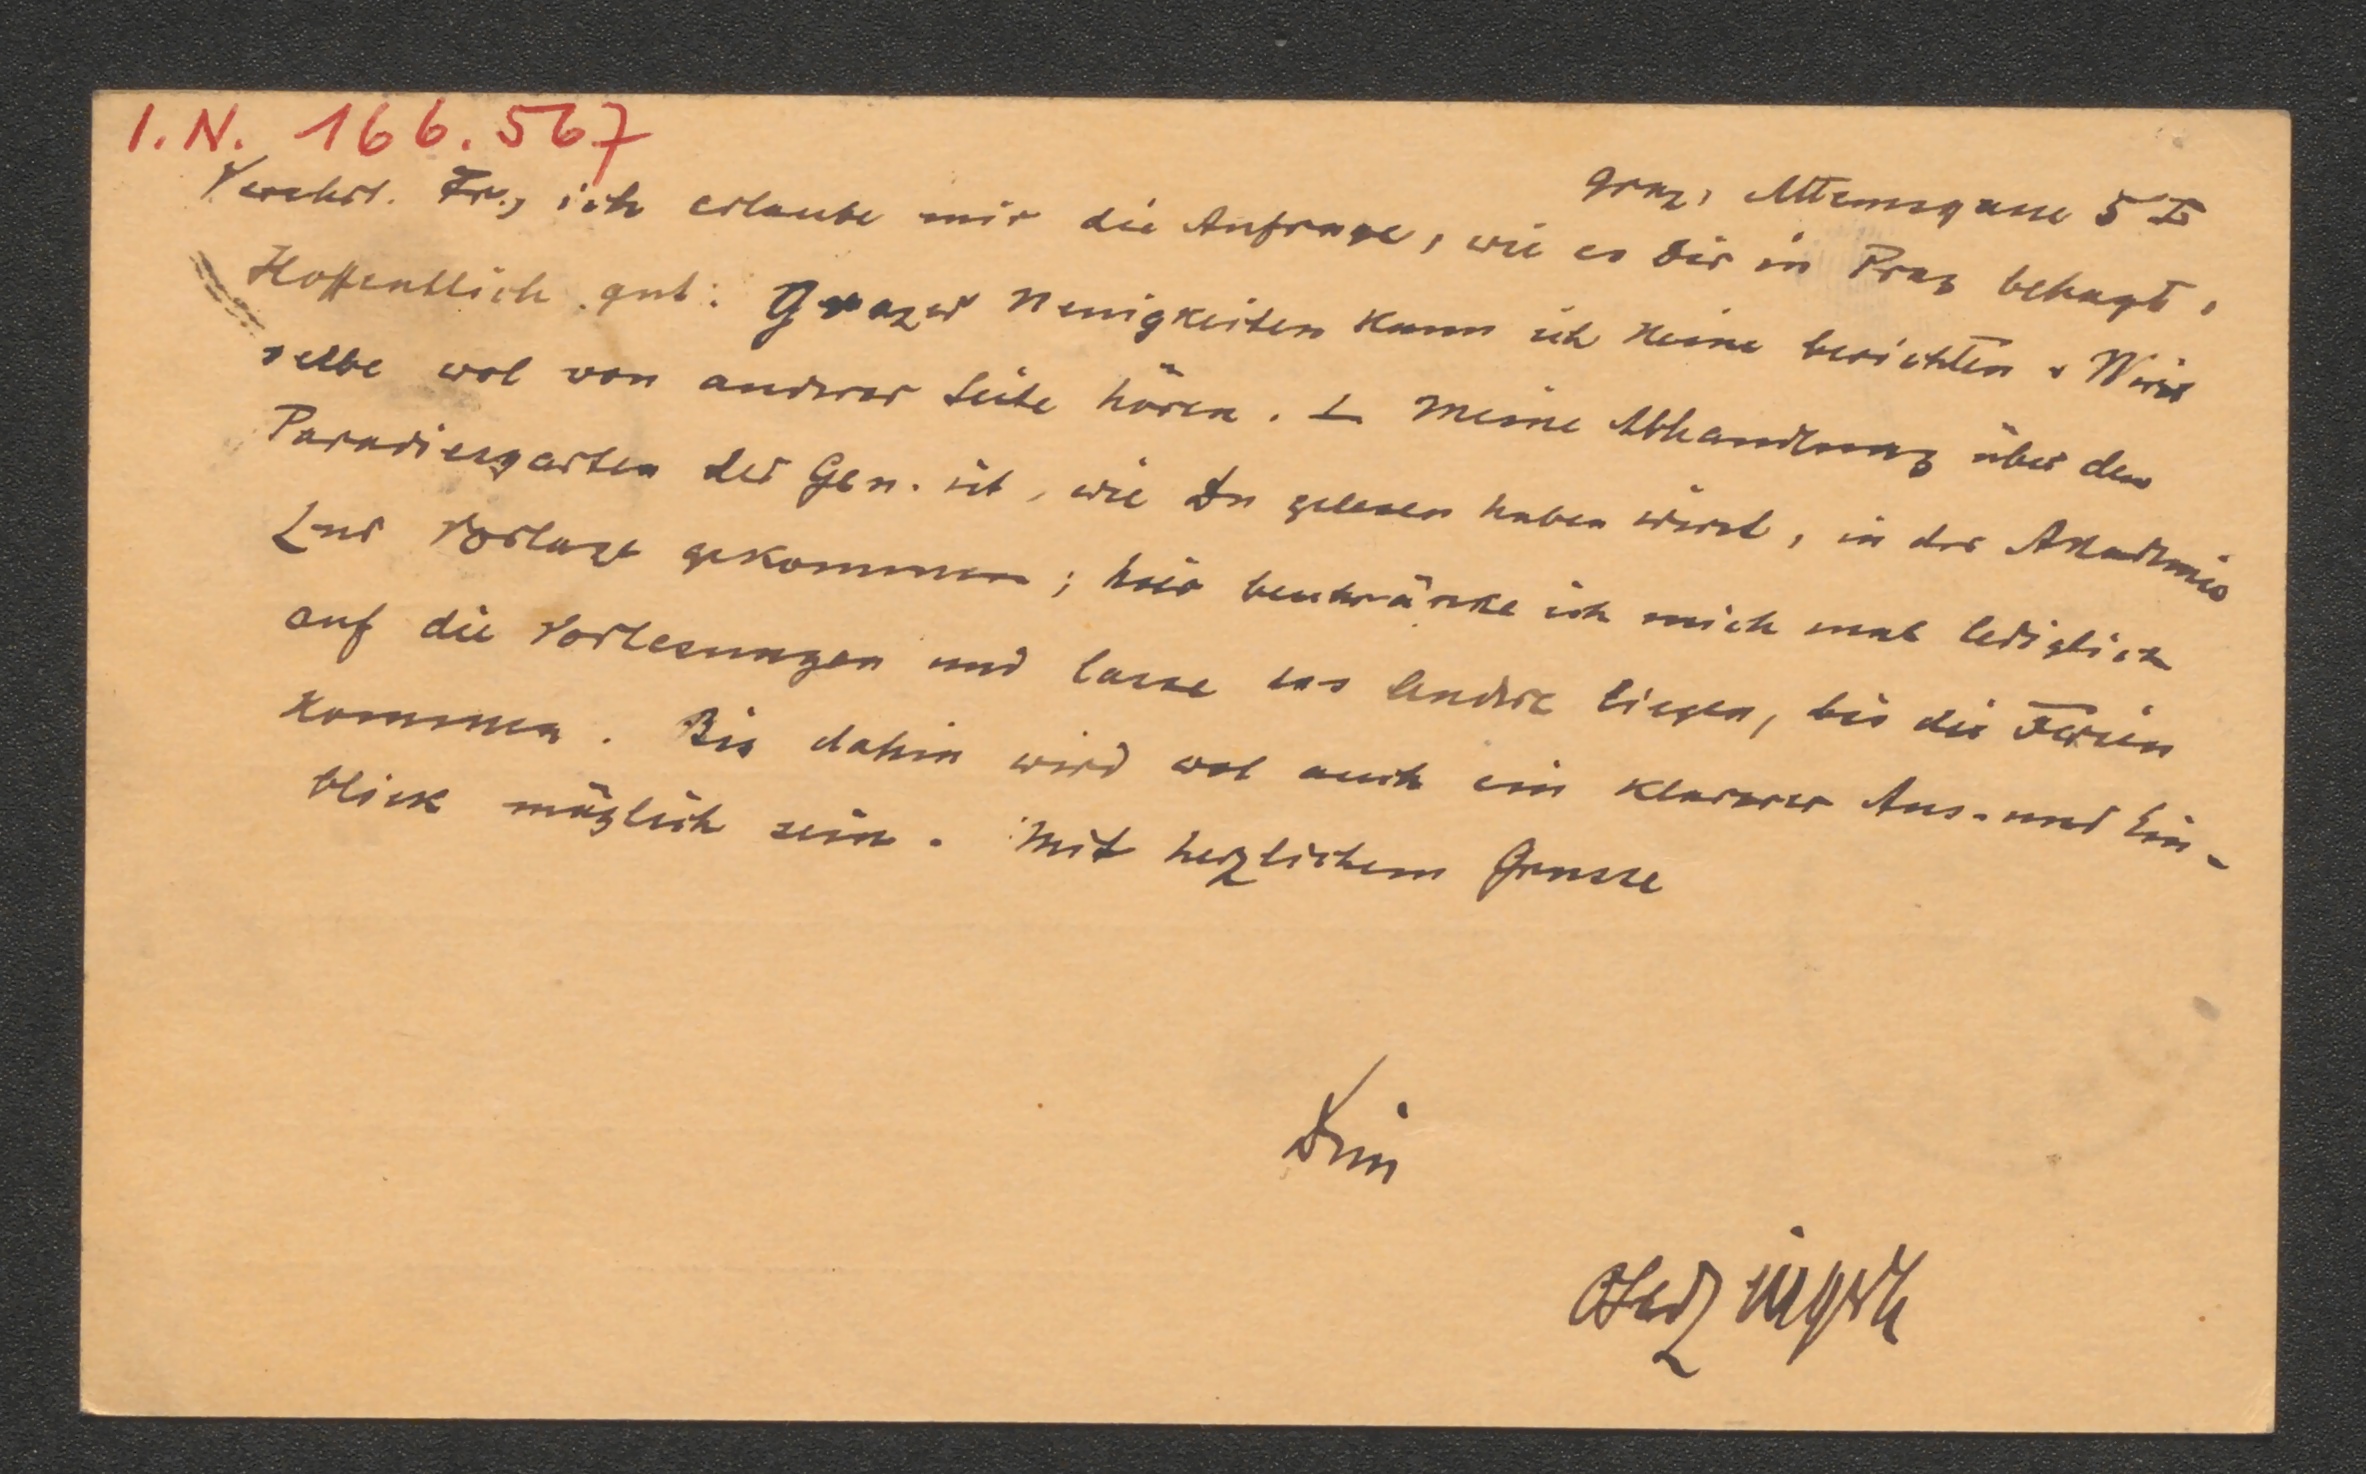 I.N. 166.567
Graz, Attemsgasse 5 I
Verehrt. Fr., ich erlaube mir die Anfrage, wie es Dir in Prag behagt.
Hoffentlich gut. Grazer Neuigkeiten kann ich keine berichten. Wirst
selbe wol von anderer Seite hören. – Meine Abhandlung über den
Paradiesgarten der Gen. ist, wie Du gelesen haben wirst, in der Akademie
zur Vorlage gekommen; hier beschränke ich mich mal lediglich
auf die Vorlesungen und lasse das Andre liegen, bis die Ferien
kommen. Bis dahin wird wol auch ein klarerer Aus- und Ein-
blick möglich sein. Mit herzlichem Grusse
Dein